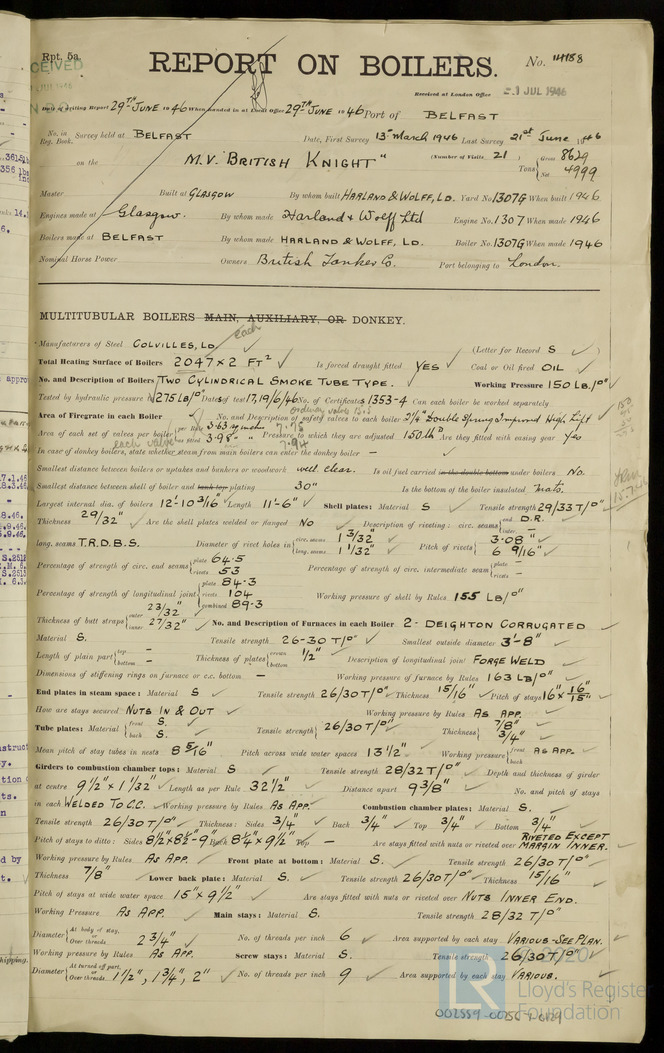 Rpt. 5a.
REPORT ON BOILERS.
No. 14188
Received at London Office 31 JUL 1946
Date of writing Report 29TH JUNE 1946 When handed in at Local Office 29TH JUNE 1946 Port of BELFAST
No. in Reg. Book. Survey held at BELFAST Date, First Survey 13th March 1946 Last Survey 21st June 1946
on the M.V. "BRITISH KNIGHT" (Number of Visits 21) Tons Gross 8629 Net 4999
Master Built at GLASGOW By whom built HARLAND & WOLFF, LD. Yard No 1307G When built 1946
Engines made at Glasgow. By whom made Harland & Wolff Ltd Engine No. 1307 When made 1946
Boilers made at BELFAST By whom made HARLAND & WOLFF, LD. Boiler No. 1307G When made 1946
Nominal Horse Power Owners British Tanker Co. Port belonging to London.
MULTITUBULAR BOILERS MAIN, AUXILIARY, OR DONKEY.
Manufacturers of Steel COLVILLES, LD (Letter for Record S)
each
Total Heating Surface of Boilers 2047 × 2 FT² Is forced draught fitted YES Coal or Oil fired OIL
No. and Description of Boilers TWO CYLINDRICAL SMOKE TUBE TYPE. Working Pressure 150 LB/□"
Tested by hydraulic pressure to 275 LB/□" Dates of test 17,19/6/46 No. of Certificates 1353-4 Can each boiler be worked separately
Area of Firegrate in each Boiler No. and Description of safety valves to each boiler 2½" Double Spring Improved High Lift
Area of each set of valves per boiler per Rule 3.63 sq inches as fitted 3.98 " Pressure to which they are adjusted 150 lb Are they fitted with easing gear Yes
each valve 7.94
In case of donkey boilers, state whether steam from main boilers can enter the donkey boiler —
Smallest distance between boilers or uptakes and bunkers or woodwork well clear. Is oil fuel carried in the double bottom under boilers No.
Smallest distance between shell of boiler and tank top plating 30" Is the bottom of the boiler insulated mats.
Largest internal dia. of boilers 12'-10 3/16" Length 11'-6" Shell plates: Material S Tensile strength 29/33 T/□"
Thickness 29/32" Are the shell plates welded or flanged NO Description of riveting: circ. seams end D.R. inter. —
long. seams T.R.D.B.S. Diameter of rivet holes in circ. seams 1 3/32" long. seams 1 1/32" Pitch of rivets 3.08" 6 9/16"
Percentage of strength of circ. end seams plate 64.5 rivets 53 Percentage of strength of circ. intermediate seam plate — rivets —
Percentage of strength of longitudinal joint plate 84.3 rivets 104 combined 89.3 Working pressure of shell by Rules 155 LB/□"
Thickness of butt straps outer 23/32" inner 27/32" No. and Description of Furnaces in each Boiler 2 - DEIGHTON CORRUGATED
Material S. Tensile strength 26-30 T/□" Smallest outside diameter 3'-8"
Length of plain part top — bottom — Thickness of plates crown bottom ½" Description of longitudinal joint FORGE WELD
Dimensions of stiffening rings on furnace or c.c. bottom — Working pressure of furnace by Rules 163 LB/□"
End plates in steam space: Material S Tensile strength 26/30 T/□" Thickness 15/16" Pitch of stays 16" × 16" 15"
How are stays secured NUTS IN & OUT Working pressure by Rules AS APP.
Tube plates: Material front S. back S. Tensile strength 26/30 T/□" Thickness 7/8" 3/4"
Mean pitch of stay tubes in nests 8 5/16" Pitch across wide water spaces 13 ½" Working pressure front AS APP. back
Girders to combustion chamber tops: Material S Tensile strength 28/32 T/□" Depth and thickness of girder
at centre 9 ½" × 1 1/32" Length as per Rule 32 ½" Distance apart 9 3/8" No. and pitch of stays
in each WELDED TO C.C. Working pressure by Rules AS APP. Combustion chamber plates: Material S.
Tensile strength 26/30 T/□" Thickness: Sides 3/4" Back 3/4" Top 3/4" Bottom 3/4"
Pitch of stays to ditto: Sides 8½" × 8½-9" Back 8¼" × 9½" Top — Are stays fitted with nuts or riveted over RIVETED EXCEPT MARGIN INNER.
Working pressure by Rules AS APP. Front plate at bottom: Material S. Tensile strength 26/30 T/□"
Thickness 7/8" Lower back plate: Material S. Tensile strength 26/30 T/□" Thickness 15/16"
Pitch of stays at wide water space 15" × 9 ½" Are stays fitted with nuts or riveted over NUTS INNER END.
Working Pressure AS APP. Main stays: Material S. Tensile strength 28/32 T/□"
Diameter At body of stay, or Over threads. 2 3/4" No. of threads per inch 6 Area supported by each stay VARIOUS - SEE PLAN.
Working pressure by Rules AS APP. Screw stays: Material S. Tensile strength 26/30 T/□"
Diameter At turned off part, or Over threads. 1 ½", 1 3/4", 2" No. of threads per inch 9 Area supported by each stay VARIOUS.
© 2020
LR
Lloyd's Register
Foundation